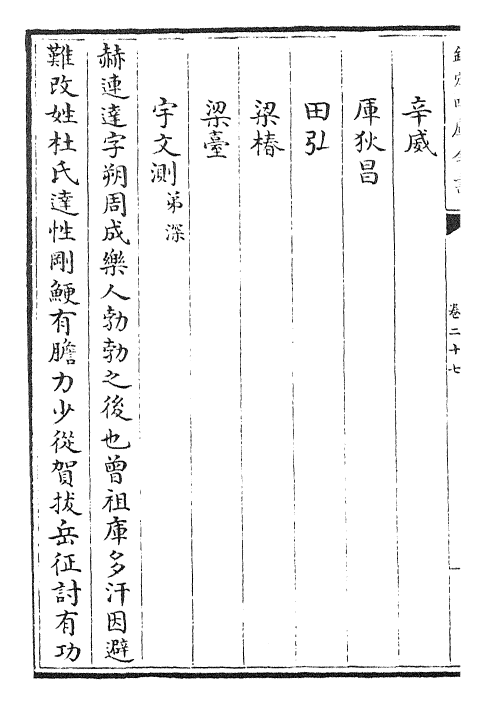 欽定四庫全書
卷二十七
辛威
厙狄昌
田弘
梁椿
梁臺
宇文測弟深
赫連達字朔周成樂人勃勃之後也曾祖庫多汗因避
難改姓杜氏達性剛鯁有膽力少從賀拔岳征討有功